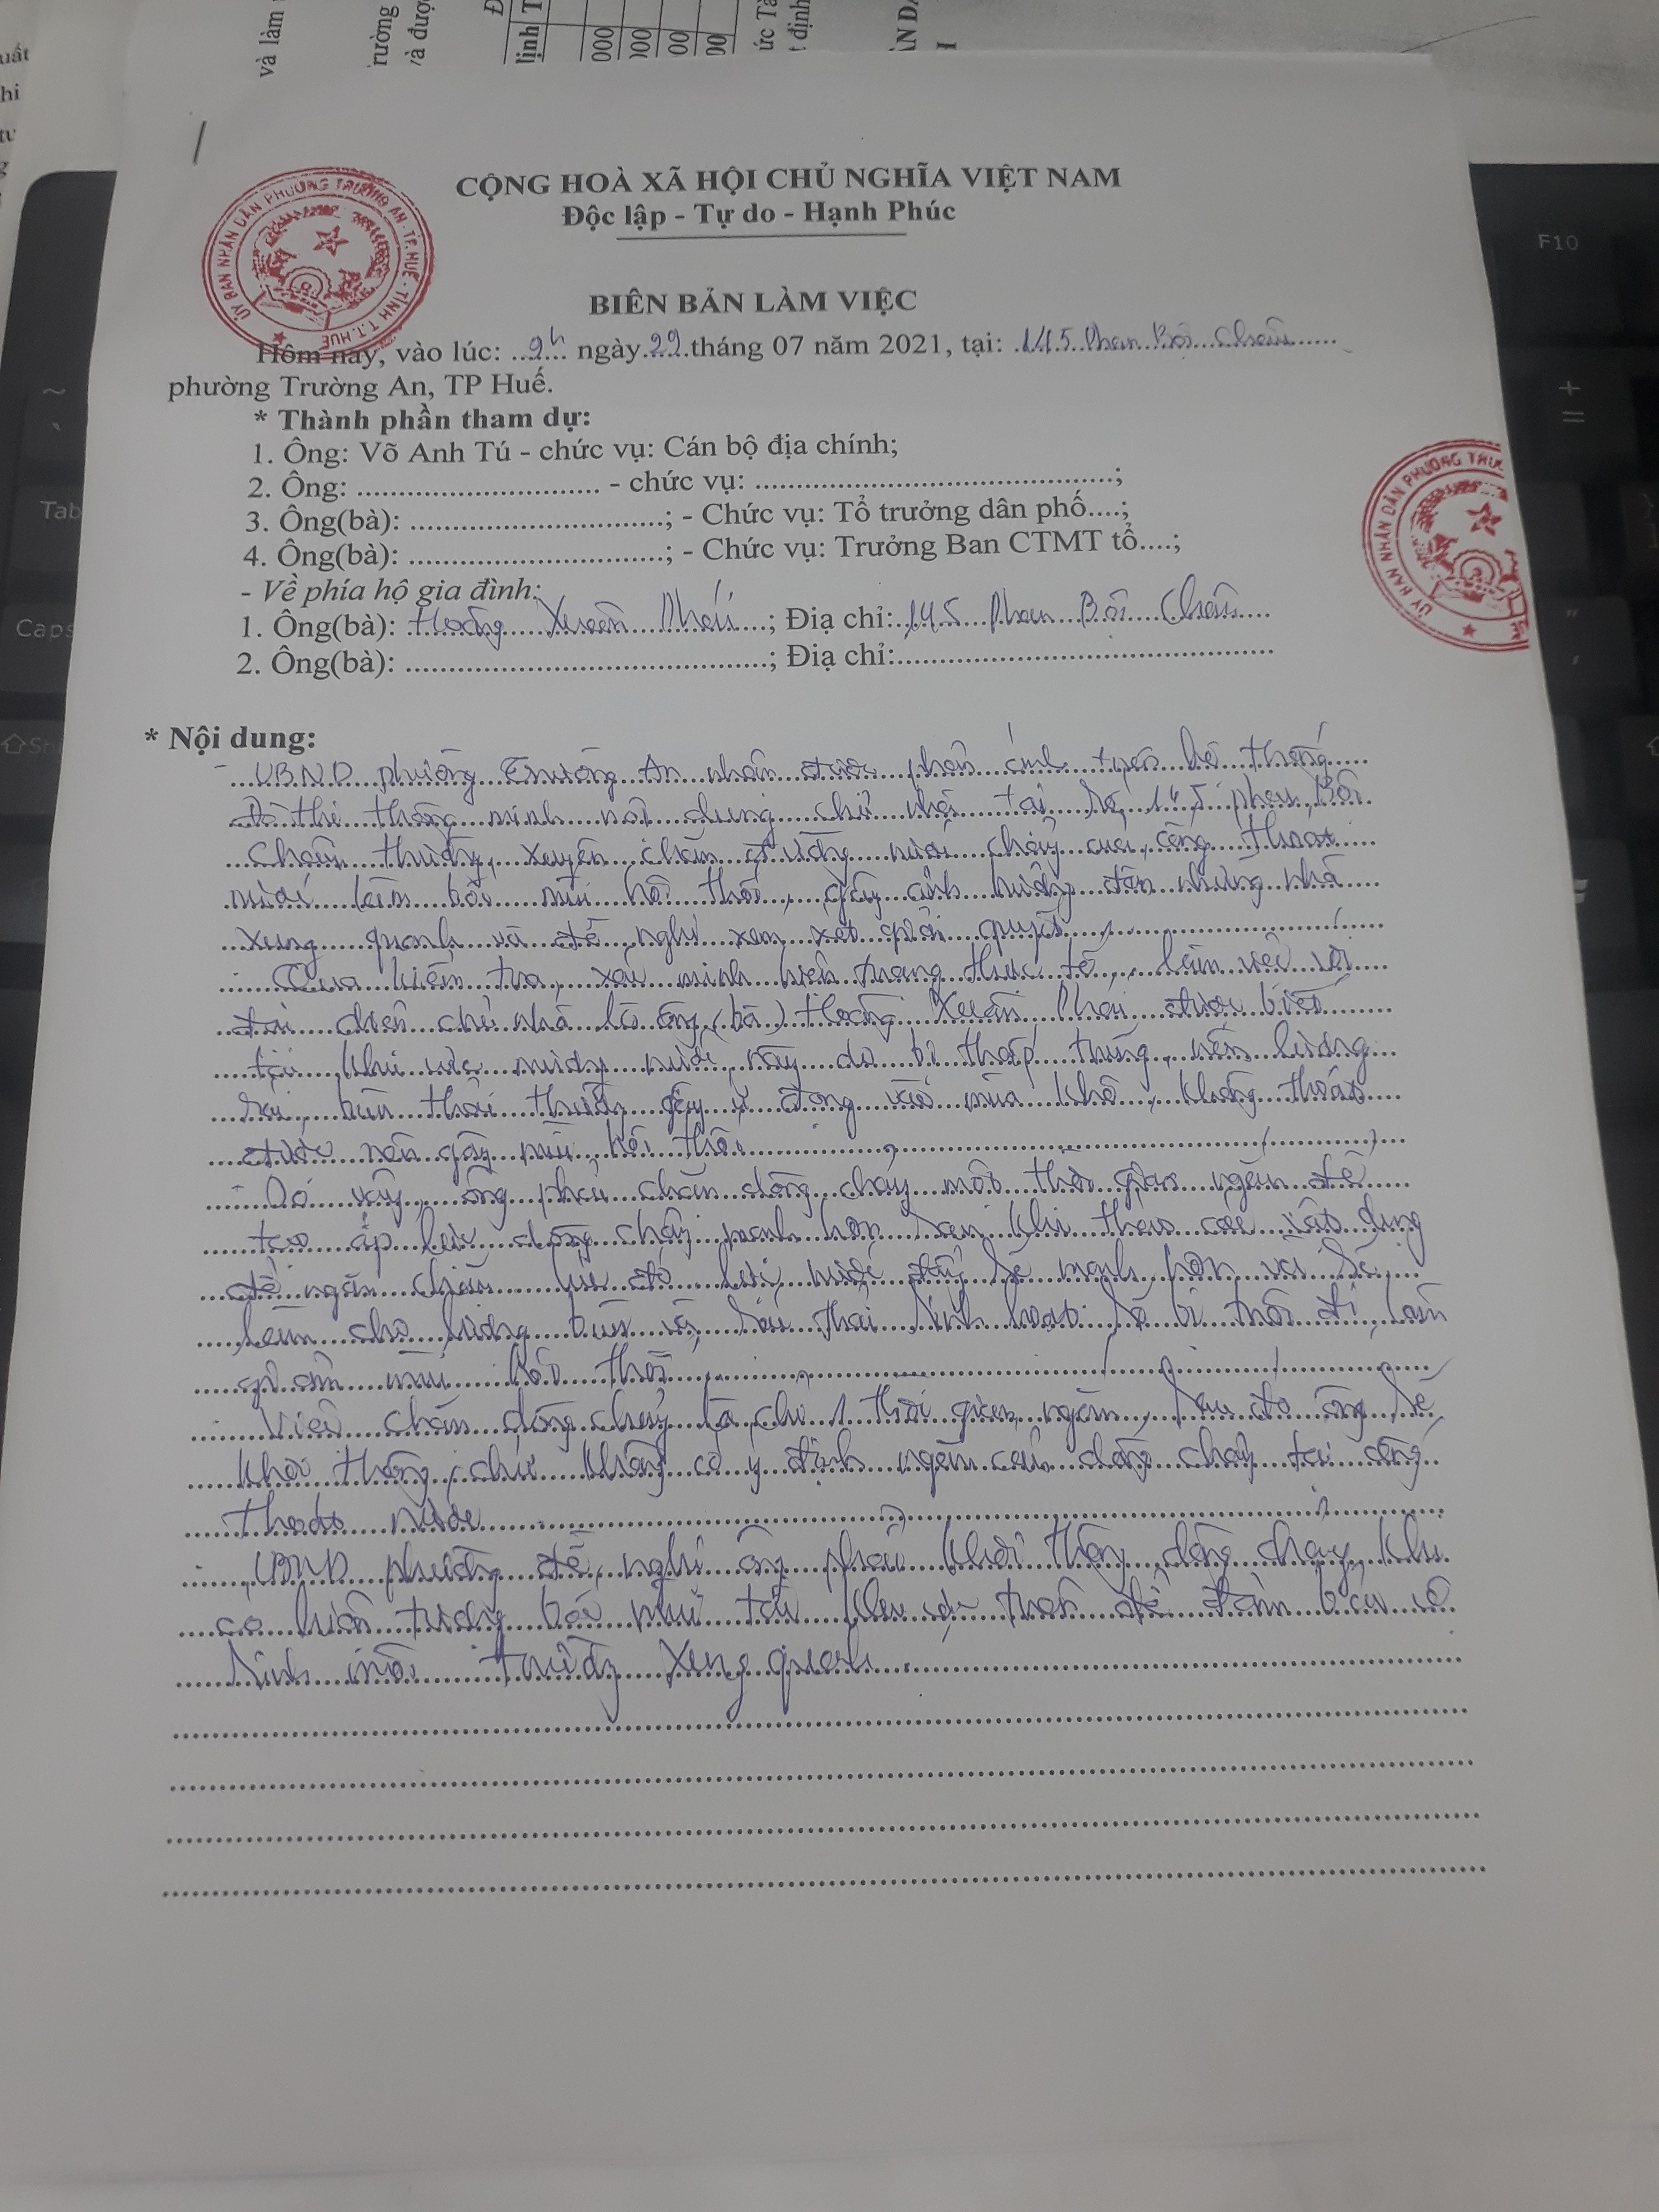 CỘNG HOÀ XÃ HỘI CHỦ NGHĨA VIỆT NAM
Độc lập - Tự do - Hạnh Phúc
ỦY BAN NHÂN DÂN PHƯỜNG TRƯỜNG AN - TP.HUẾ - TỈNH T.T.HUẾ
BIÊN BẢN LÀM VIỆC
Hôm nay, vào lúc: ..9h.. ngày 29 tháng 07 năm 2021, tại: 145 Phan Bội Châu
phường Trường An, TP Huế.
* Thành phần tham dự:
1. Ông: Võ Anh Tú - chức vụ: Cán bộ địa chính;
2. Ông: ............................. - chức vụ: ..........................................;
3. Ông(bà): ..............................; - Chức vụ: Tổ trưởng dân phố....;
4. Ông(bà): ..............................; - Chức vụ: Trưởng Ban CTMT tổ....;
- Về phía hộ gia đình:
1. Ông(bà): Hoàng Xuân Phái; Địa chỉ: 145 Phan Bội Châu
2. Ông(bà): ...........................................; Địa chỉ:.............................................
* Nội dung:
- UBND phường Trường An nhận được phản ánh trên hệ thống
Đô thị thông minh nội dung chủ nhà tại số 145 Phan Bội
Châu thường xuyên chắn đường nước chảy của cống thoát
nước làm bốc mùi hôi thối, gây ảnh hưởng đến những nhà
xung quanh và đề nghị xem xét giải quyết.
- Qua kiểm tra, xác minh hiện trạng thực tế, làm việc với
đại diện chủ nhà là ông (bà) Hoàng Xuân Phái được biết
tại khu vực mương nước này do bị thấp trũng, nên lượng
rác, bùn thải thường gây ứ đọng vào mùa khô, không thoát
được nên gây mùi hôi thối
- Do vậy, ông Phái chắn dòng chảy một thời gian ngắn để
tạo áp lực dòng chảy mạnh hơn sau khi tháo các vật dụng
để ngăn chắn, lúc đó lực nước đẩy sẽ mạnh hơn và sẽ
làm cho lượng bùn và rác thải sinh hoạt sẽ bị trôi đi, làm
giảm mùi hôi thối.
- Việc chắn dòng chảy là chỉ 1 thời gian ngắn, sau đó ông sẽ
khơi thông, chứ không có ý định ngăn cản dòng chảy tại cống
thoát nước
- UBND phường đề nghị ông Phái khơi thông dòng chảy, khi
có hiện tượng bốc mùi tại khu vực trên để đảm bảo vệ
sinh môi trường xung quanh.